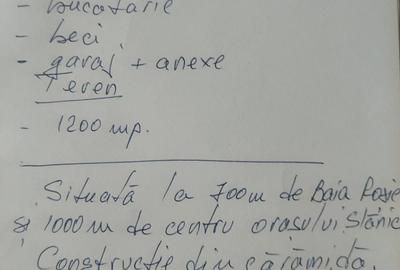 - bucatarie
- beci
- garaj + anexe
Teren
- 1200 mp.
Situată la 700m de Baia Roșie
și 1000 m de centru orașului Slănic
Construcție din cărămidă.